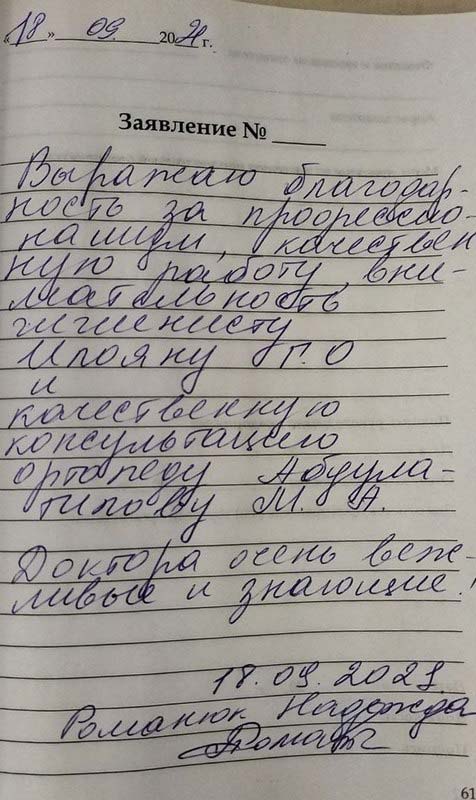 «18» 09. 2021 г.
Заявление № ____
Выражаю благодар-
ность за профессио-
нализм, качествен
ную работу, вни-
мательность
гигиенисту
Ипояну Г.О
и
качественную
консультацию
ортопеду Абдула-
типову М. А.
Доктора очень веж-
ливые и знающие.
18.09.2021
Романюк Надежда
61